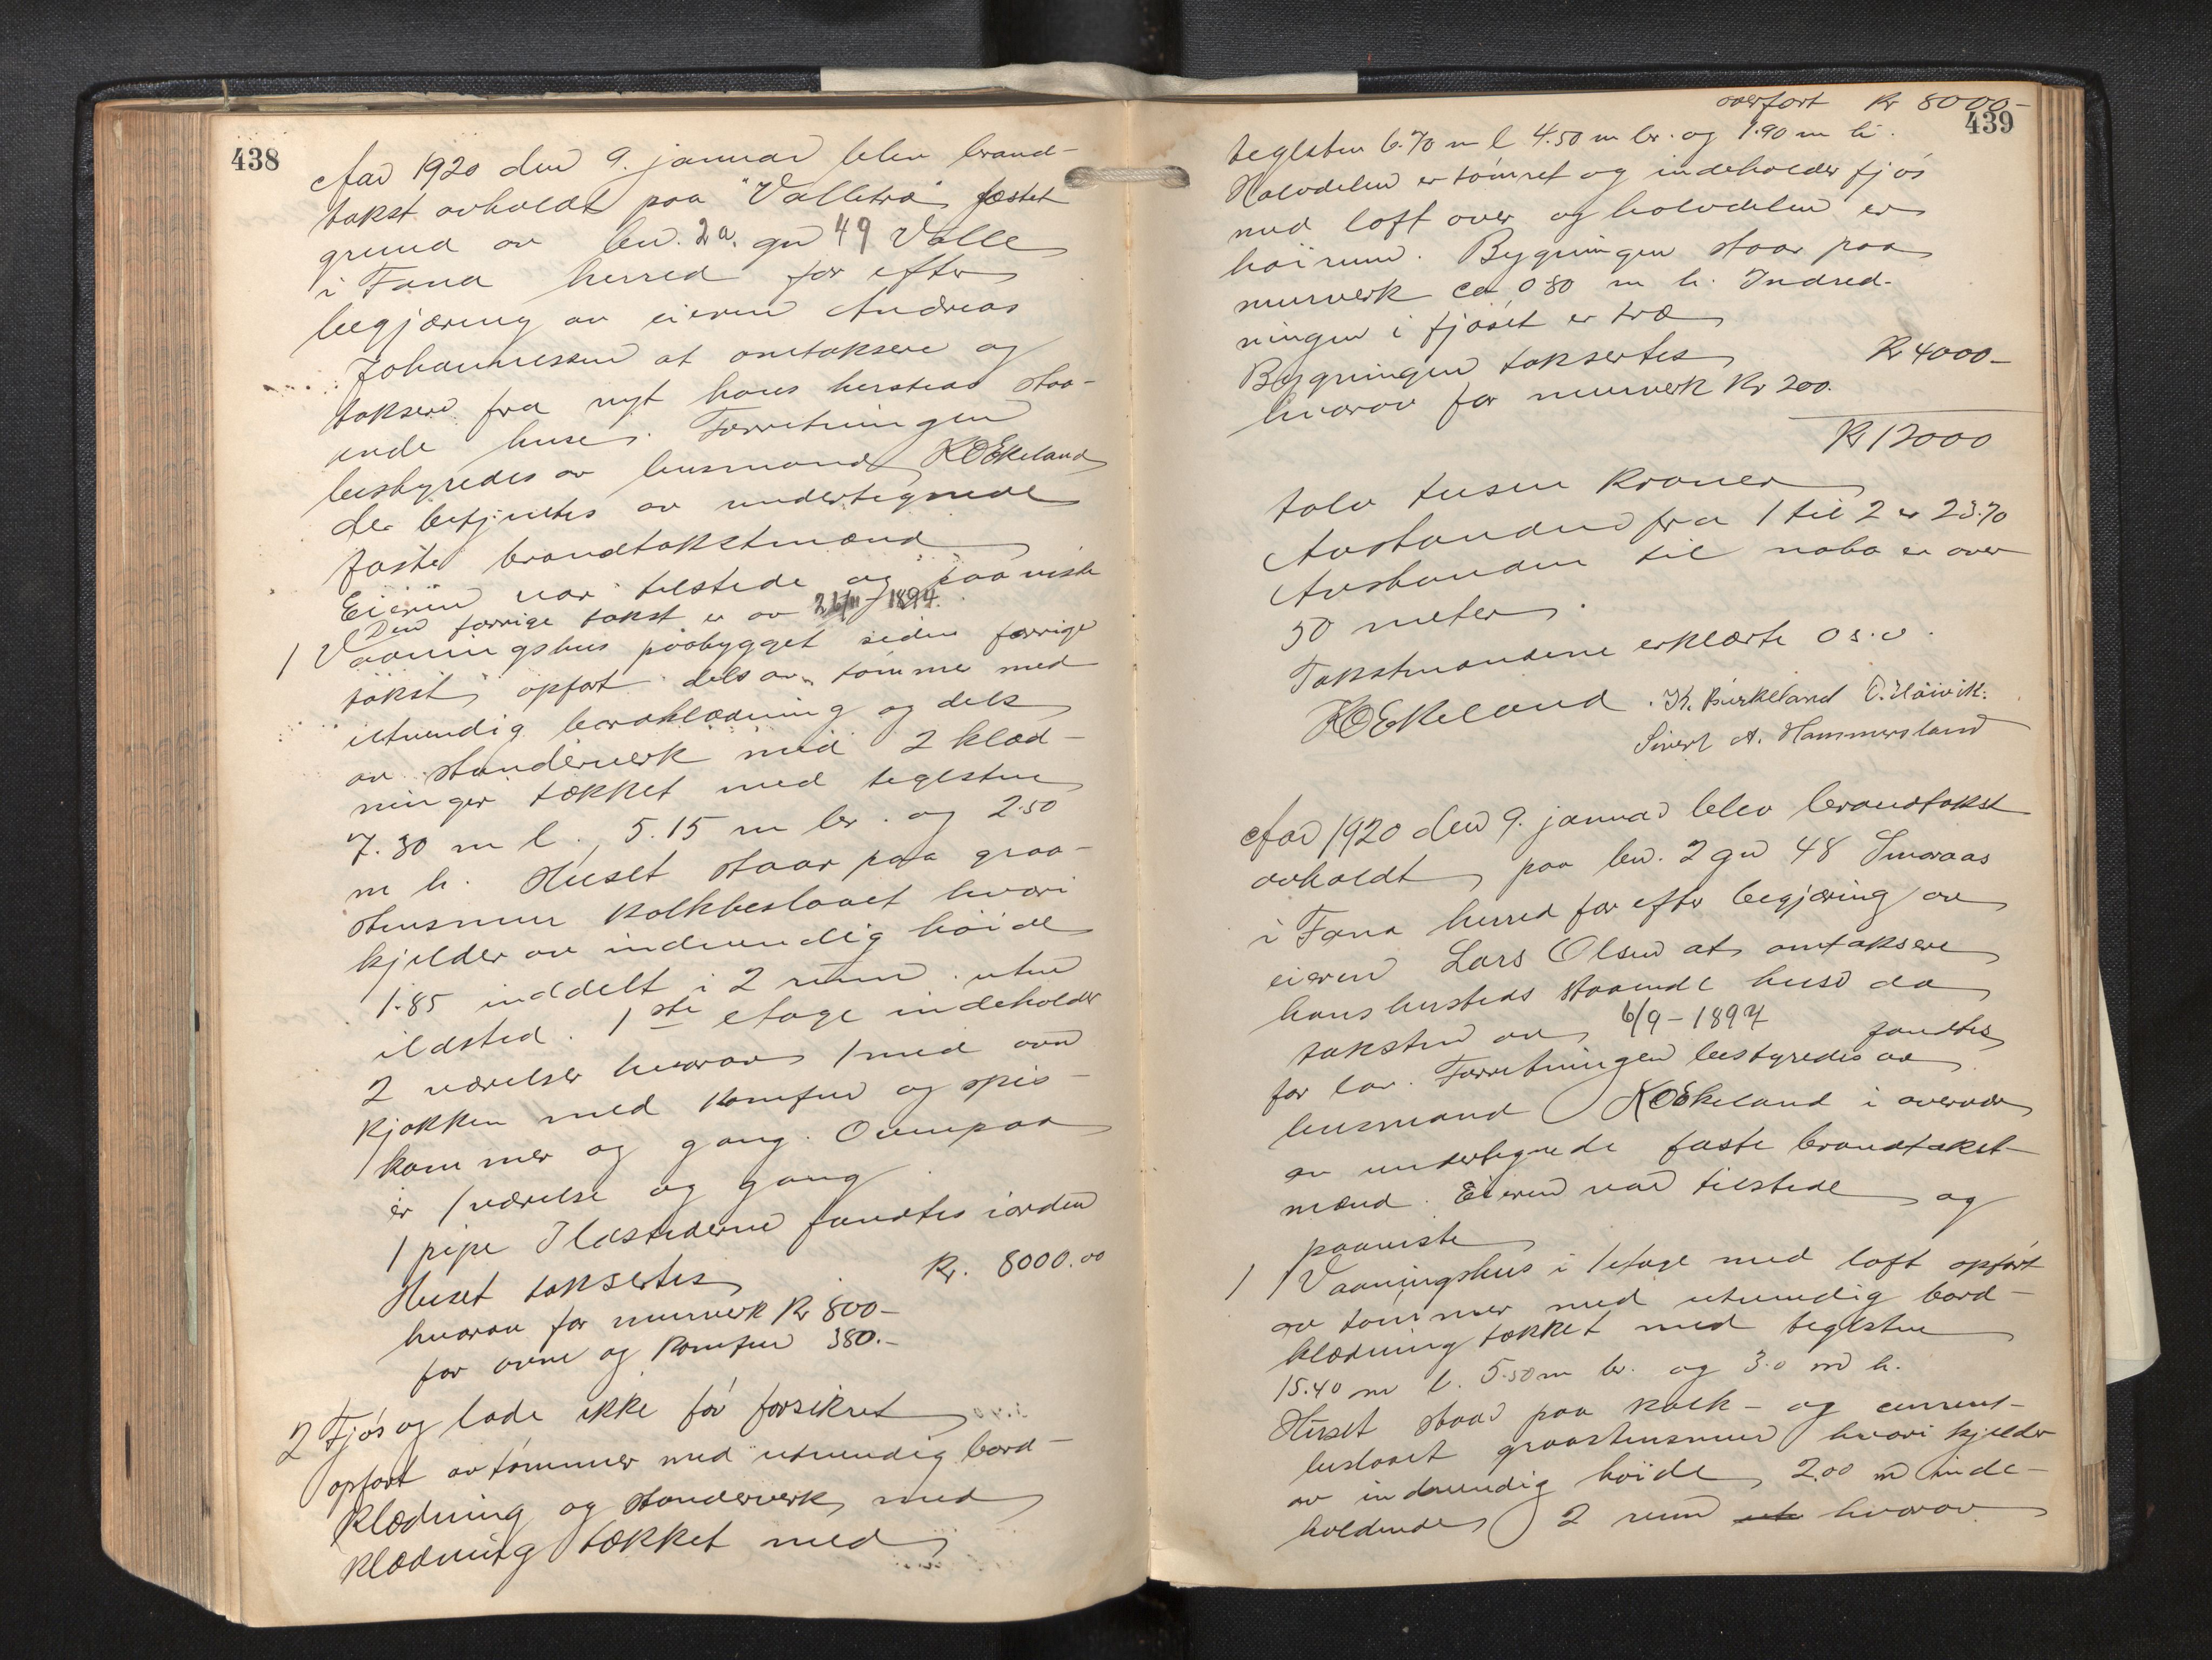 438
Aar 1920 den 9. januar blev brand-
takst avholdt paa "Valletræ" fæstet
grund av bn. 2a. gn 49 Valle
i Fana herred for efter
begjæring av eieren Andreas
Johannessen at omtaksere og
taksere fra nyt hans hersteds staa-
ende huse. Forretningen
bestyredes av lensmand KOEkeland
der betjentes av undertegnede
faste brandtakstmænd
Eieren var tilstede og paaviste
Den forrige takst er av 26/11-1894.
1 Vaaningshus paabygget siden forrige
takst, opført dels av tømmer med
utvendig bordklædning og dels
av standerverk med 2 klæd-
ninger tækket med teglsten
7.30 m l., 5.15 m br. og 2.50
m h. Huset staar paa graa-
stensmur kalkbeslaaet hvori
kjelder av indvendig høide
1.85 inddelt i 2 rum uten
ildsted. 1ste etage indeholder
2 værelser hvorav 1 med ovn
kjøkken med komfur og spis-
kammer og gang. Ovenpaa
er 1 værelse og gang
1 pipe Ildstederne fandtes iorden
Huset taksertes Kr. 8000.00
hvorav for murverk Kr 800-
for ovne og komfur 380.-
2 Fjøs og lade ikke før forsikret
opført av tømmer med utvendig bord-
klædning og standerverk med
klædning tækket med
overført Kr 8000-
439
teglsten 6.70 m l 4.50 m br. og 1.90 m h.
Halvdelen er tømret og indeholder fjøs
med loft over og halvdelen er
høirum. Bygningen staar paa
murverk ca 0.80 m h. Indred-
ningen i fjøset er træ
Bygningen taksertes Kr 4000-
hvorav for murverk Kr 200.
Kr 12000
tolv tusen Kroner
Avstanden fra 1 til 2 er 23.70
Avstanden til nabo er over
50 meter.
Takstmændene erklærte o s. v.
KOEkeland. K. Birkeland O. Høivik.
Sivert A. Hammersland
Aar 1920 den 9. januar blev brandtakst
avholdt paa bn. 2 gn 48 Smøraas
i Fana herred for efter begjæring av
eieren Lars Olsen at omtaksere
hans hersteds staaende huse da
taksten av 6/9-1897 fandtes
for lav. Forretningen bestyredes av
lensmand KOEkeland i overvær
av undertegnede faste brandtakst-
mænd. Eieren var tilstede og
paaviste
1 1 Vaaningshus i 1 etage med loft opført
av tømmer med utvendig bord-
klædning tækket med teglsten
15.40 m l. 5.50 m br. og 3.0 m h.
Huset staar paa kalk- og cement-
beslaaet graastensmur hvori kjelder
av indvendig høide 2.00 m inde-
holdende 2 rum hvorav